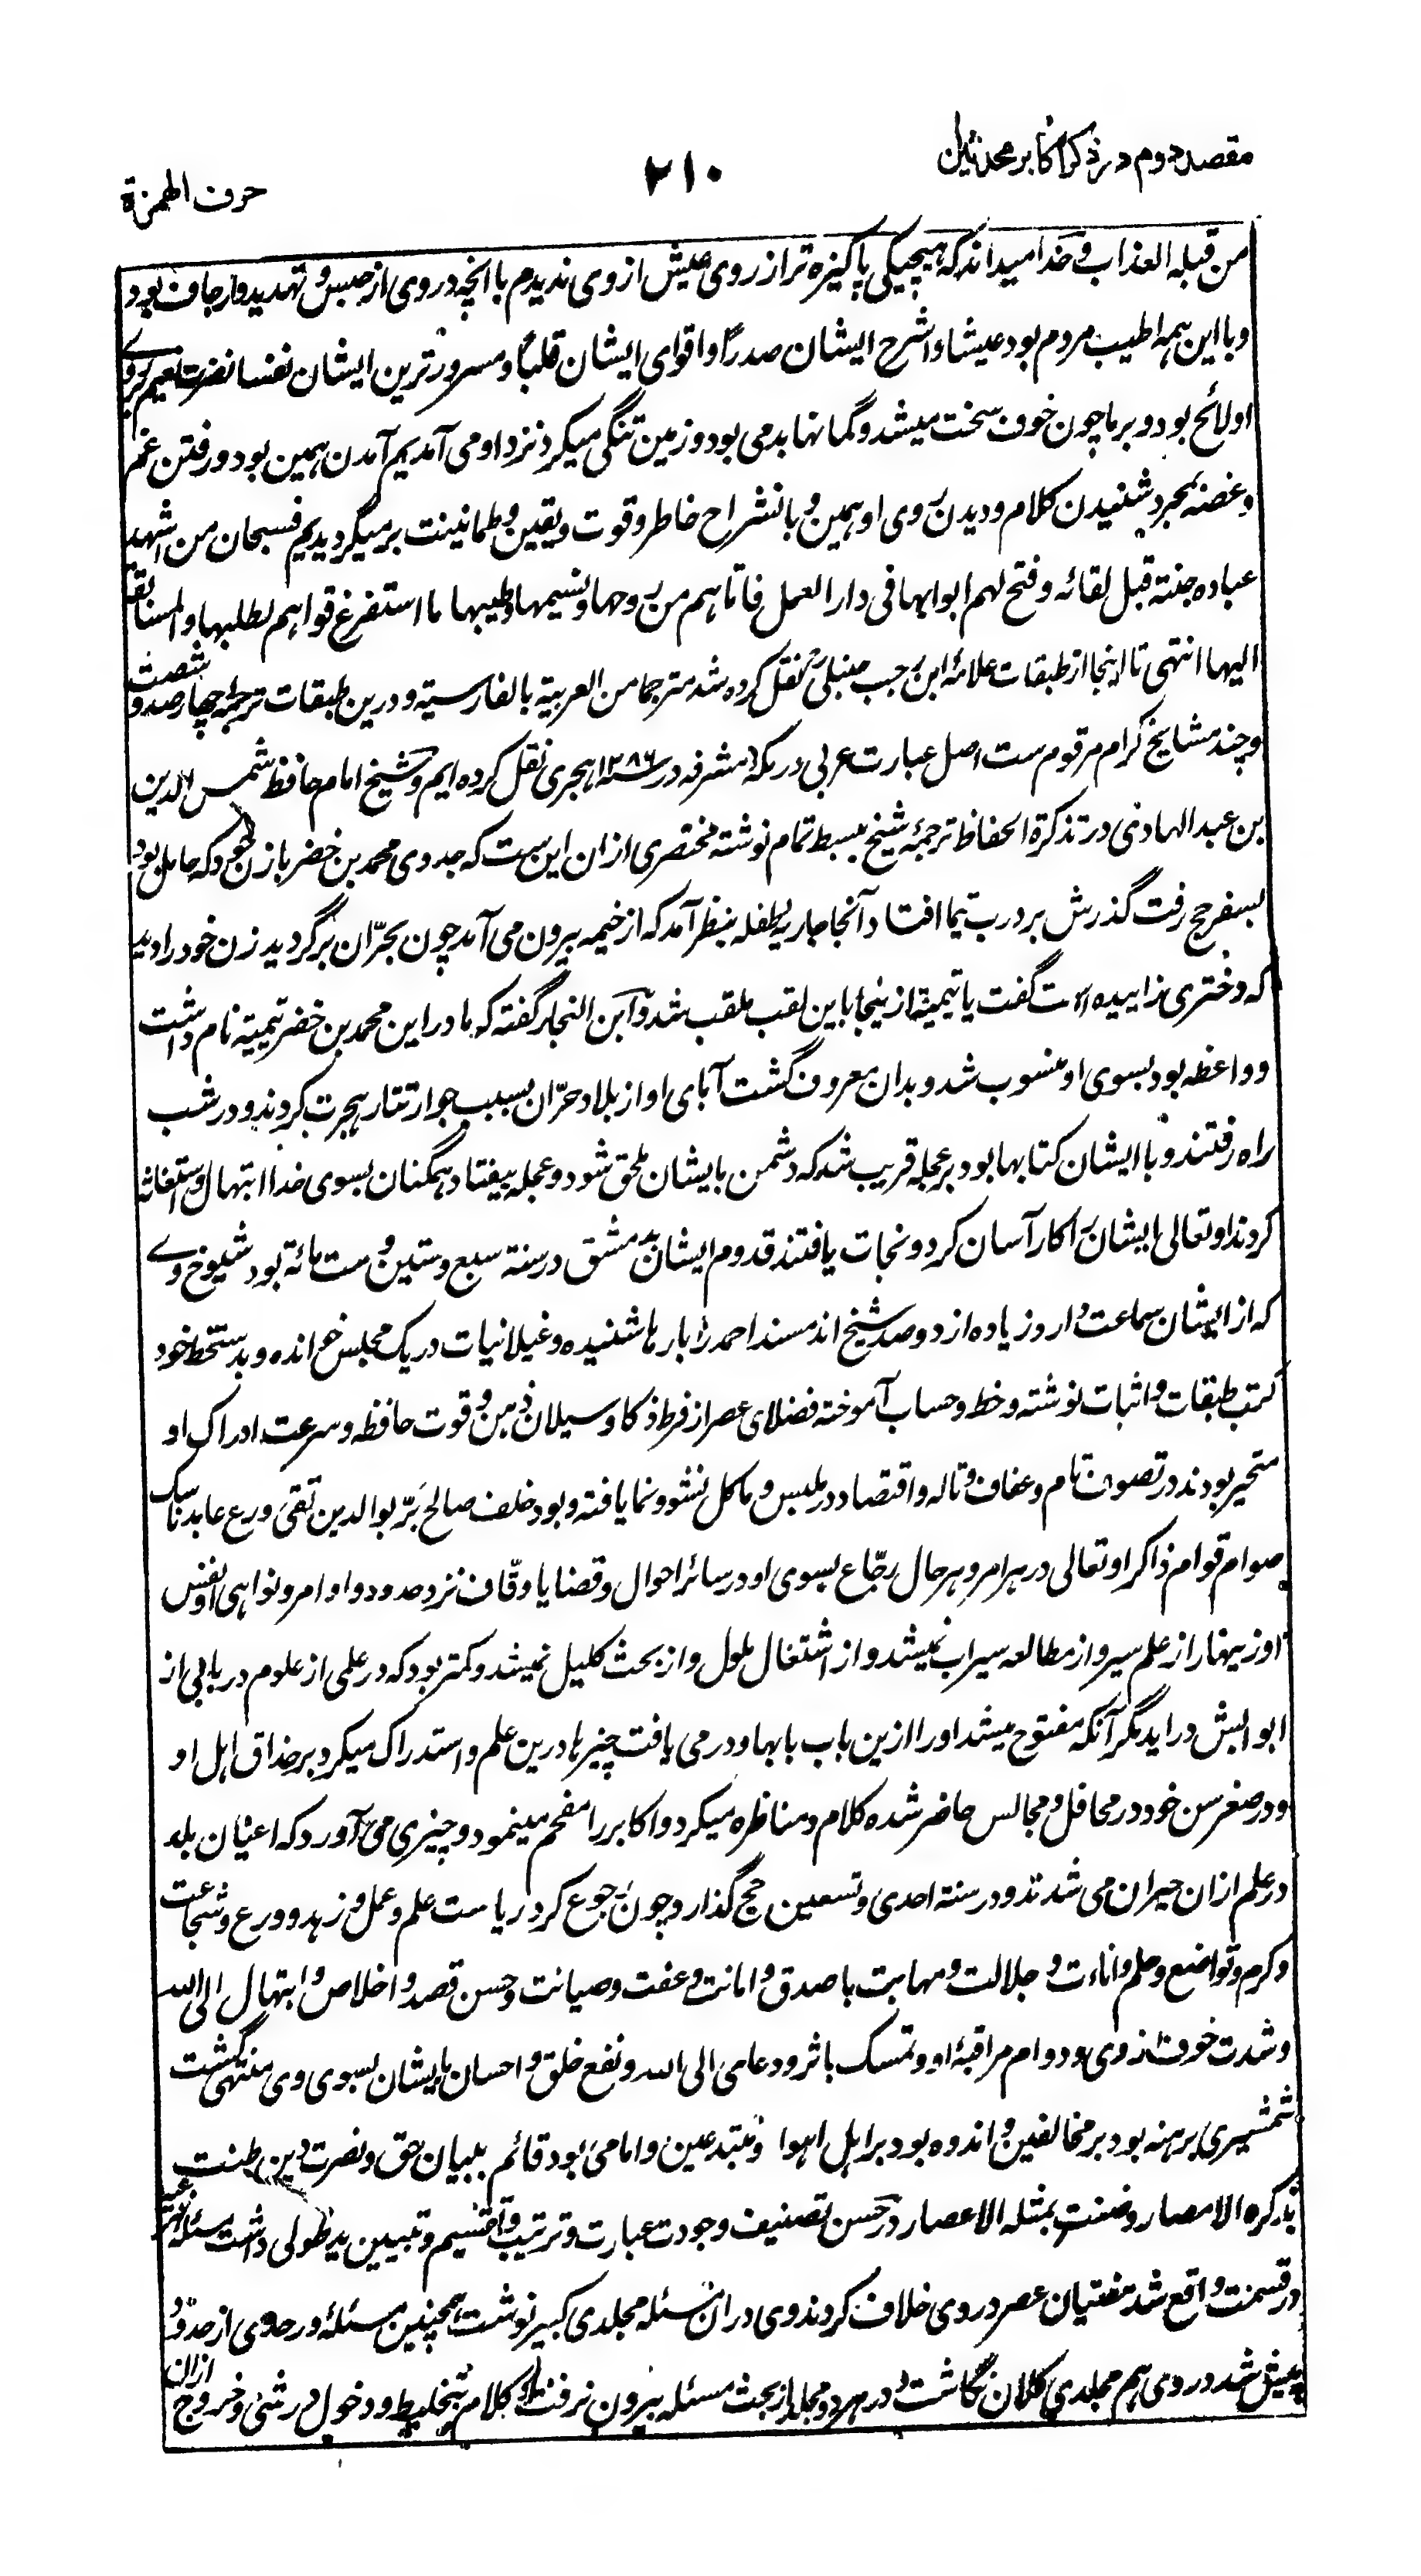 مقصد دوم در ذکر اکابر محدثین
۲۱۰
حرف الهمزة
من قبله العذاب و خدا میداند که هیچیکی پاکیزه تر از روی عیش از وی ندیدم با آنچه در وی از حبس و تهدید و ارجاف بود
و با این همه اطیب مردم بود عیشا و اشرح ایشان صدرا و اقوای ایشان قلبا و مسرورترین ایشان نفسا نضرت نعیم بر روی
او لائح بود و بر ما چون خوف سخت میشد و گمانها بد می بود و زمین تنگی میکرد نزد او می آمدیم آمدن همین بود و رفتن غم
و غصه بمجرد شنیدن کلام و دیدن روی او همین و بانشراح خاطر و قوت و یقین و طمانینت بر میگردیدیم فسبحان من اشهد
عباده جنته قبل لقائه و فتح لهم ابوابها فی دار العمل فاتاهم من روحها و نسیمها و طیبها ما استفرغ قواهم لطلبها و المسابقة
الیها انتهی تا اینجا از طبقات علامه ابن رجب حنبلی نقل کرده شد مترجما من العربیة بالفارسیة و درین طبقات ترجمه چهار صد و شصت
و چند مشایخ کرام مرقوم ست اصل عبارت عربی در مکه مشرفه در سنه ۱۲۸۶ هجری نقل کرده ایم و شیخ امام حافظ شمس الدین
بن عبد الهادی در تذکرة الحفاظ ترجمۀ شیخ ببسط تمام نوشته مختصری ازان این ست که جد وی محمد بن خضر با زن خود که حامل بود
بسفر حج رفت گذرش بر درب تیما افتاد آنجا جاریه طفله بنظر آمد که از خیمه بیرون می آمد چون بحرّان برگردید زن خود را دید
که دختری زاییده است گفت یا تیمیة ازینجا باین لقب ملقب شد و ابن النجار گفته که مادر این محمد بن خضر تیمیه نام داشت
و واعظه بود بسوی او منسوب شد و بدان معروف گشت آبای او از بلاد حرّان بسبب جوار تتار هجرت کردند و در شب
راه رفتند و با ایشان کتابها بود بر عجله قریب شد که دشمن بایشان ملحق شود و عجله بیفتاد همگنان بسوی خدا ابتهال و استغاثه
کردند او تعالی ایشان را کار آسان کرد و نجات یافتند قدوم ایشان بدمشق در سنة سبع و ستین و ست مائة بود شیوخ وے
که از ایشان سماعت دارد زیاده از دو صد شیخ اند مسند احمد را بارها شنیده و غیلانیات در یک مجلس خوانده و بدستخط خود
کتب طبقات و اثبات نوشته و خط و حساب آموخته فضلای عصر از فرط ذکا و سیلان ذهن و قوت حافظه و سرعت ادراک او
متحیر بودند در تصون تام و عفاف و تاله و اقتصاد در ملبس و ماکل نشو و نما یافته و بود خلف صالح بَرّ بوالدین تقی ورع عابد ناسک
صوام قوام ذاکر او تعالی در هر امر و هر حال رجّاع بسوی او در سائر احوال و قضایا وقّاف نزد حدود و اوامر و نواهی او نفس
او زینهار از علم سیر و از مطالعه سیراب نمیشد و از اشتغال ملول و از بحث کلیل نمیشد و کمتر بود که در علمی از علوم در بابی از
ابوابش در اید مگر آنکه مفتوح میشد او را ازین باب بابها و در می یافت چیزها درین علم و استدراک میکرد بر حذاق اهل او
و در صغر سن خود در محافل و مجالس حاضر شده کلام و مناظره میکرد و اکابر را مفحم مینمود و چیزی می آورد که اعیان بلد
در علم ازان حیران می شدند و در سنة احدی و تسعین حج گذارد چون رجوع کرد ریاست علم و عمل و زهد و ورع و شجاعت
و کرم و تواضع و حلم و اناءت و جلالت و مهابت با صدق و امانت و عفت و صیانت و حسن قصد و اخلاص و ابتهال الی الله
و شدت خوف ازوی و دوام مراقبۀ او و تمسک باثر و دعا می الی الله و نفع خلق و احسان بایشان بسوی وی منتهی گشت
شمشیری برهنه بود بر مخالفین و اندوه بود بر اهل اهوا و مبتدعین و امامی بود قائم ببیان حق و نصرت دین طنت
بذکره الامصار و ضنت بمثله الاعصار در حسن تصنیف و جودت عبارت و ترتیب و تقسیم و تبیین ید طولی داشت مسئله
در قسمت واقع شد مفتیان عصر در وی خلاف کردند وی دران مسئله مجلدی کبیر نوشت همچنین مسئلۀ در حدی از حدود
پیش شد در وی هم مجلدی کلان نگاشت و در هر دو مجلد از بحث مسئله بیرون نرفت و کلام بتخلیط و دخول در شئ و خروج ازان